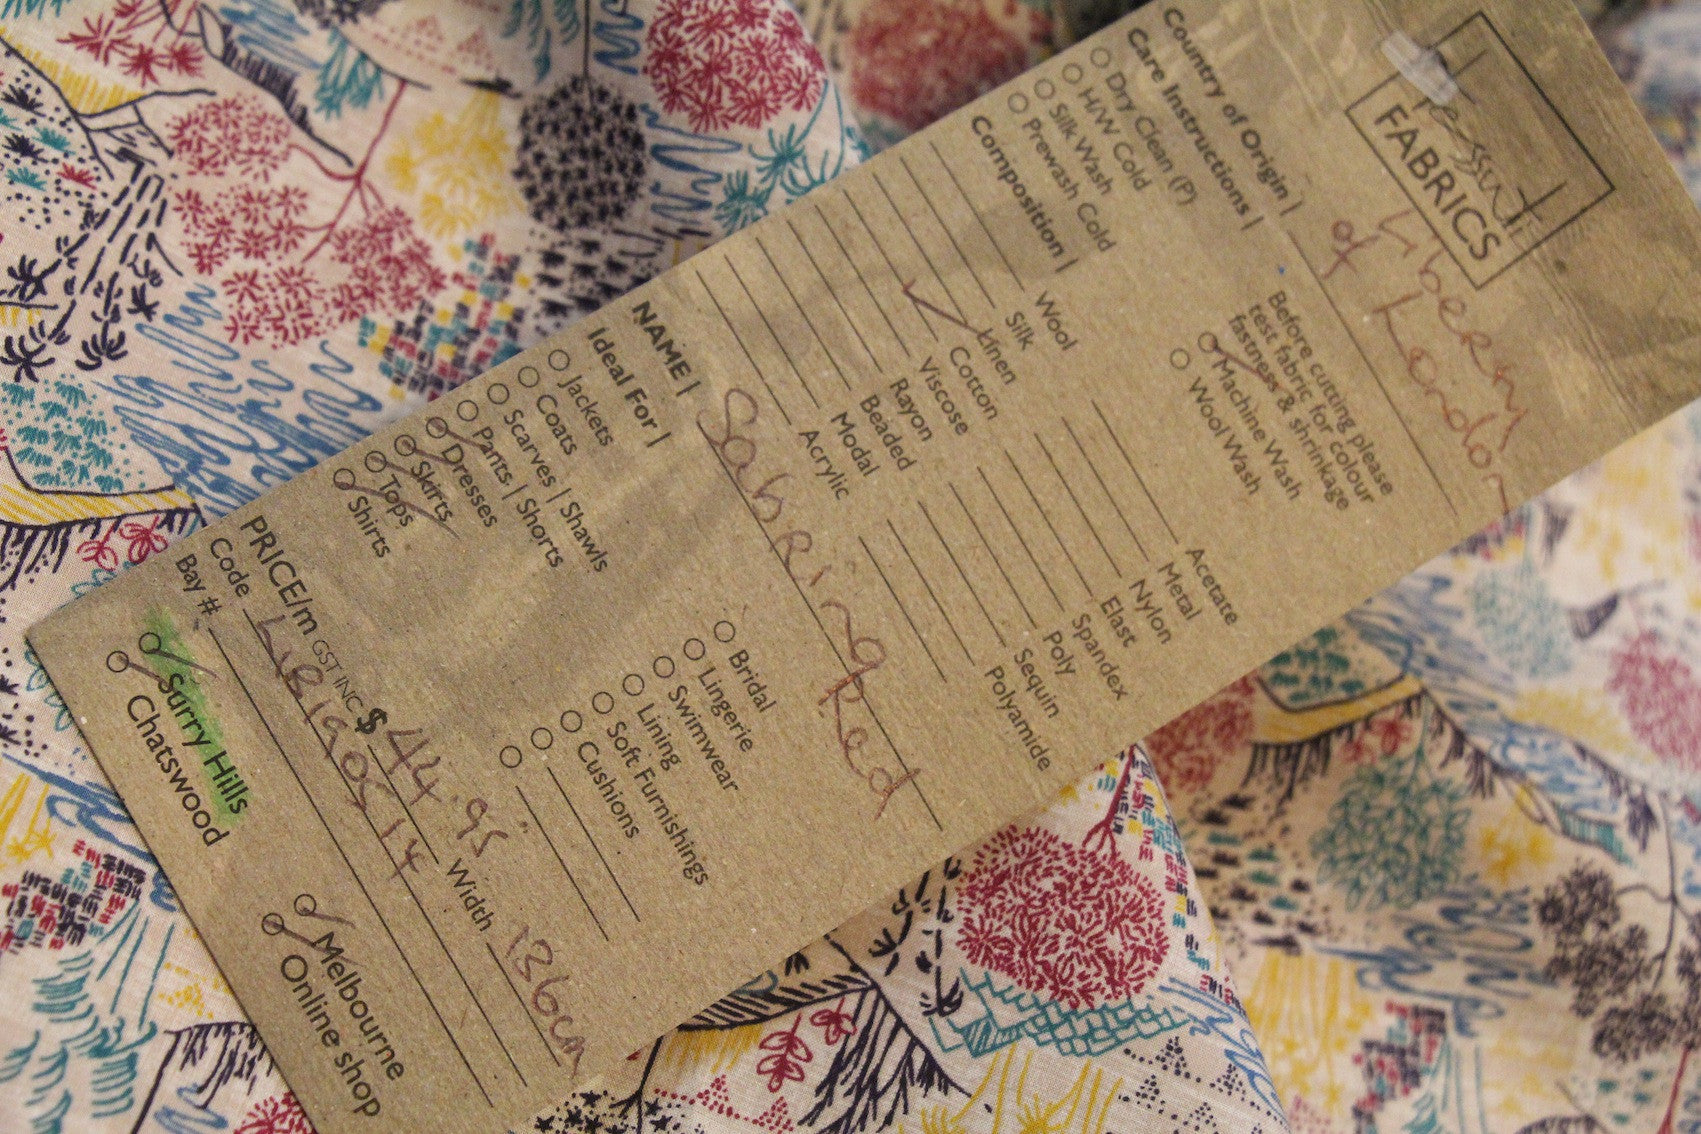 Tessuti
FABRICS
Liberty
of London
Country of Origin |
Care Instructions |
Dry Clean (P)
H/W Cold
Silk Wash
Prewash Cold
Before cutting please
test fabric for colour
fastness & shrinkage
Machine Wash
Wool Wash
Composition |
Wool
Silk
Linen
Cotton
Viscose
Rayon
Beaded
Modal
Acrylic
Acetate
Metal
Nylon
Elast
Spandex
Poly
Sequin
Polyamide
NAME | Sabrina Red
Ideal For |
Jackets
Coats
Scarves | Shawls
Pants | Shorts
Dresses
Skirts
Tops
Shirts
Bridal
Lingerie
Swimwear
Lining
Soft Furnishings
Cushions
PRICE/m GST INC $ 44.95 Width 136cm
Code
Bay #
Surry Hills
Chatswood
Melbourne
Online shop